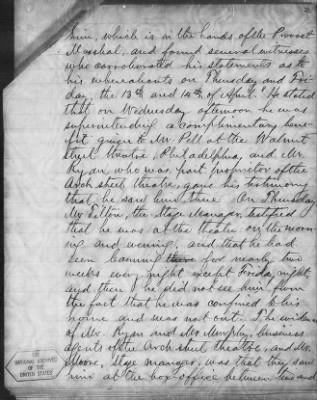 him, which is in the hands of the Provost
Marshal, and found several witnesses
who corroborated his statements as to
his whereabouts on Thursday and Fri-
day, the 13th and 14th of April. He stated
that on Wednesday afternoon he was
superintending a complimentary bene-
fit given to Mr. Pell at the Walnut
street theatre, Philadelphia, and Mr.
Ryan, who was part proprietor of the
Arch street theatre, gave his testimony
that he saw him there. On Thursday
Mr. Tilton, the Stage Manager, testified
that he was at the theatre on the morn-
ing and evening, and that he had
been coming there for nearly two
weeks every night except Friday night
and then he did not see him from
the fact that he was confined to his
home and was not out. The evidence
of Mr. Ryan and Mr. Murphy, business
agents of the Arch street theatre, and Mr.
Moore, Stage manager, was that they saw
him at the box-office between ten and
THE
NATIONAL ARCHIVES
OF THE
UNITED STATES